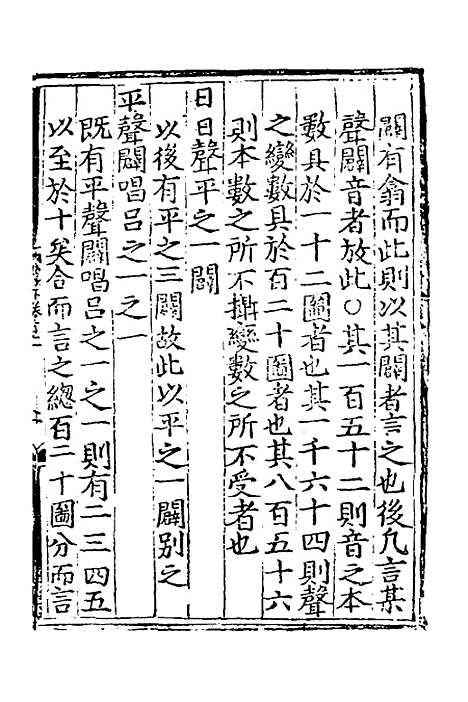 闢有翕而此則以其闢者言之也後凡言某
聲闢音者放此○其一百五十二則音之本
數具於一十二圖者也其一千六十四則聲
之變數具於百二十圖者也其八百五十六
則本數之所不攝變數之所不受者也
日日聲平之一闢
以後有平之三闢故此以平之一闢別之
平聲闢唱呂之一之一
既有平聲闢唱呂之一之一則有二三四五
以至於十矣合而言之總百二十圖分而言